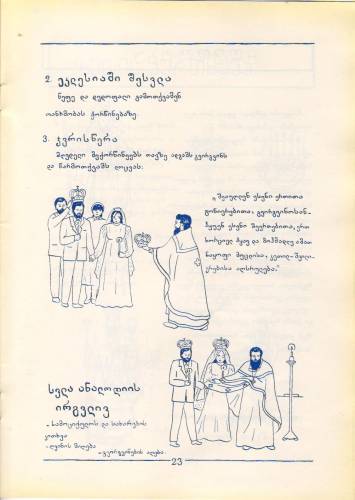 2. ეკლესიაში შესვლა
ნეფე და დედოფალი გამოთქვამენ
თანხმობას ქორწინებაზე
3. ჯვრისწერა
მღვდელი მექორწინეებს თავზე ადგამს გვირგვინს
და წარმოთქვამს ლოცვას:
„შეაუღლენ ესენი ერთითა
გონიერებითა, გვირგვინოსან-
ჰყვენ ესენი შეერთებითა, ერთ
ხორციელ ჰყავ და მოჰმადლე ამათ
ნაყოფი მუცლისა, კეთილ-შვილი-
ერებისა აღსრულება."
სვლა ანალოღიის
ირგვლივ
- სამოციქულოს და სახარების
კითხვა
- ღვინის მიღება
- გვირგვინების აღება
23